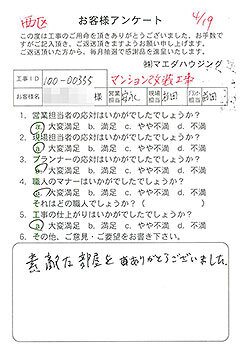 西区
お客様アンケート
4/19
この度は工事のご用命を頂きありがとうございました。お手数で
すがご記入頂き、ご返送頂きますようお願い申し上げます。
ご返送頂いた方から、毎月抽選で感謝品を進呈します。
㈱マエダハウジング
工事ID 100-00335 マンション改装工事
お客様名 様 営業担当 現場担当 担当
1. 営業担当者の応対はいかがでしたでしょうか?
a. 大変満足 b. 満足 c. やや不満 d. 不満
2. 現場担当者の応対はいかがでしたでしょうか?
a. 大変満足 b. 満足 c. やや不満 d. 不満
3. プランナーの応対はいかがでしたでしょうか?
a. 大変満足 b. 満足 c. やや不満 d. 不満
4. 職人のマナーはいかがでしたでしょうか?
a. 大変満足 b. 満足 c. やや不満 d. 不満
それはどの職人でしょうか?( )
5. 工事の仕上がりはいかがでしたでしょうか?
a. 大変満足 b. 満足 c. やや不満 d. 不満
6. その他、ご意見・ご要望をお書き下さい。
素敵な部屋を ありがとうございました。